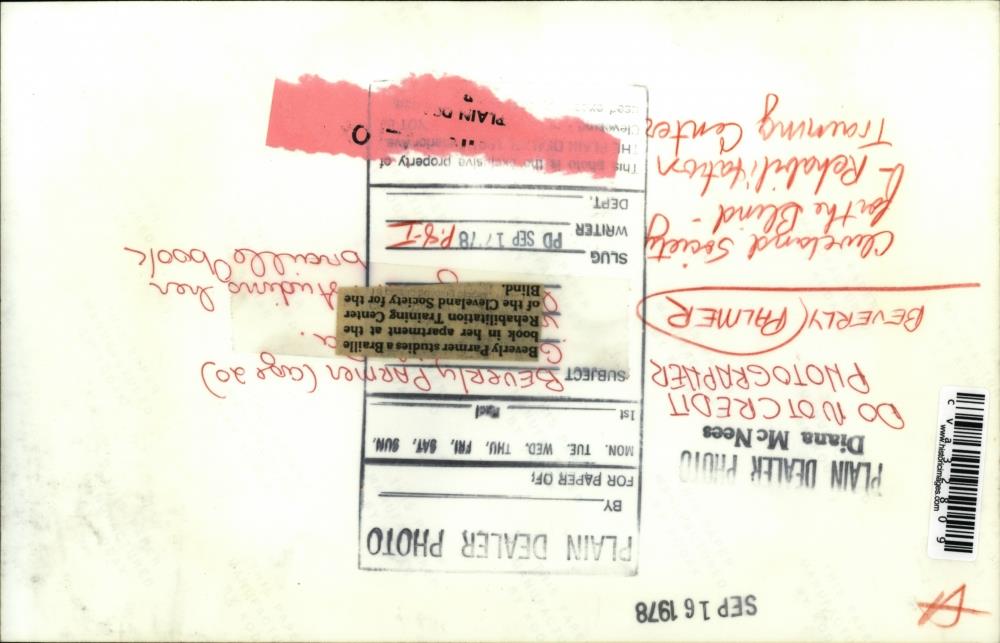 SEP 16 1978
PLAIN DEALER PHOTO
BY
FOR PAPER OF:
MON. TUE. WED. THU. FRI. SAT. SUN.
1st
SUBJECT
BEVERLY PARMER (age 20)
studing her
braille book
Beverly Parmer studies a Braille
book in her apartment at the
Rehabilitation Training Center
of the Cleveland Society for the
Blind.
SLUG
WRITER PD SEP 17 '78 P.8-I
DEPT.
This photo is the property of
THE PLAIN
PLAIN
PLAIN DEALER PHOTO
Diana McNees
DO NOT CREDIT
PHOTOGRAPHER
BEVERLY (PALMER)
Cleveland Society
for the Blind -
Rehabilitation
Training Center
cva32809
www.historicimages.com